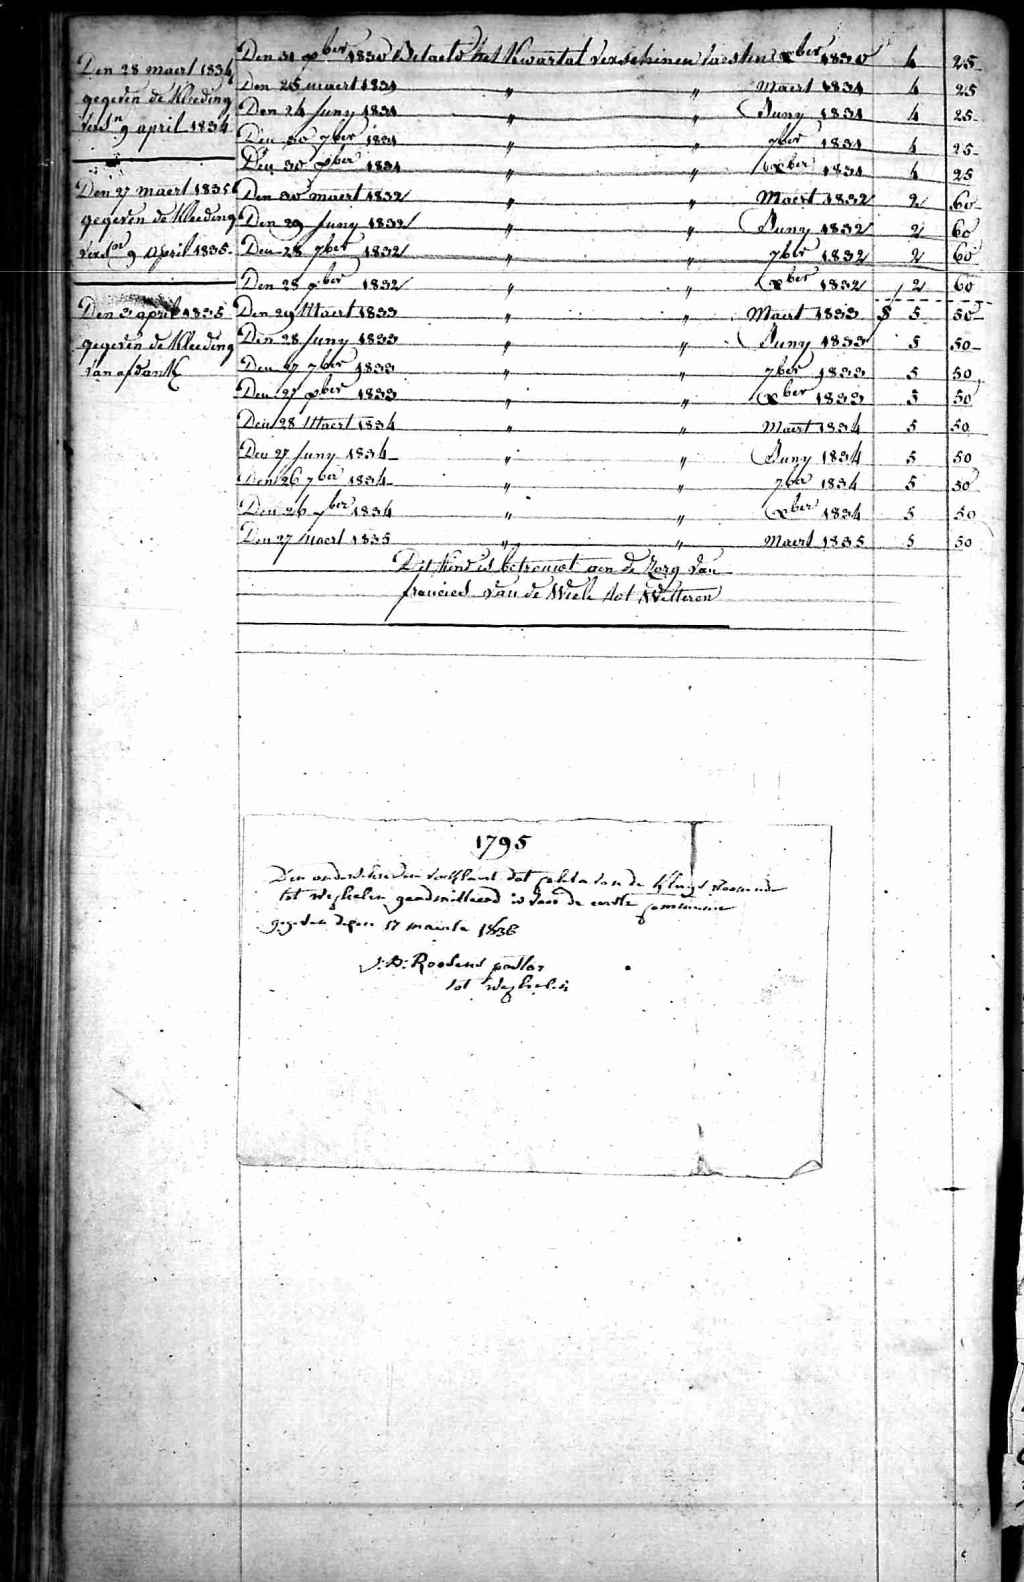 Den 28 maert 1834
gegeven de Kleeding
versn 9 april 1834
Den 27 maert 1835
gegeven de Kleeding
versn 9 April 1835
Den 2 april 1835
gegeven de Kleeding
van afdank
Den 31 xber 1830 Betaeld het Kwartal verscheinen laesten xber 1830 4 25
Den 25 maert 1831 " " Maert 1831 4 25
Den 24 Juny 1831 " " Juny 1831 4 25
Den 30 7ber 1831 " " 7ber 1831 4 25
Den 30 xber 1831 " " xber 1831 4 25
Den 30 maert 1832 " " Maert 1832 2 60
Den 29 Juny 1832 " " Juny 1832 2 60
Den 28 7ber 1832 " " 7ber 1832 2 60
Den 28 xber 1832 " " xber 1832 2 60
Den 29 Maert 1833 " " Maert 1833 5 50
Den 28 Juny 1833 " " Juny 1833 5 50
Den 27 7ber 1833 " " 7ber 1833 5 50
Den 27 xber 1833 " " xber 1833 5 50
Den 28 Maert 1834 " " Maert 1834 5 50
Den 27 Juny 1834 " " Juny 1834 5 50
Den 26 7ber 1834 " " 7ber 1834 5 50
Den 26 xber 1834 " " xber 1834 5 50
Den 27 Maert 1835 " " Maert 1835 5 50
Dit Kind is betrouwt aen de Zorg van
francies van de Wiele tot Wetteren
1795
Den ondergeteekenden verklaert dat van de Kluys woonende
tot geadmitteerd is voor de eerste communie
gegeven dezen 17 maerte 1836
J: B: Roelens pastor
tot